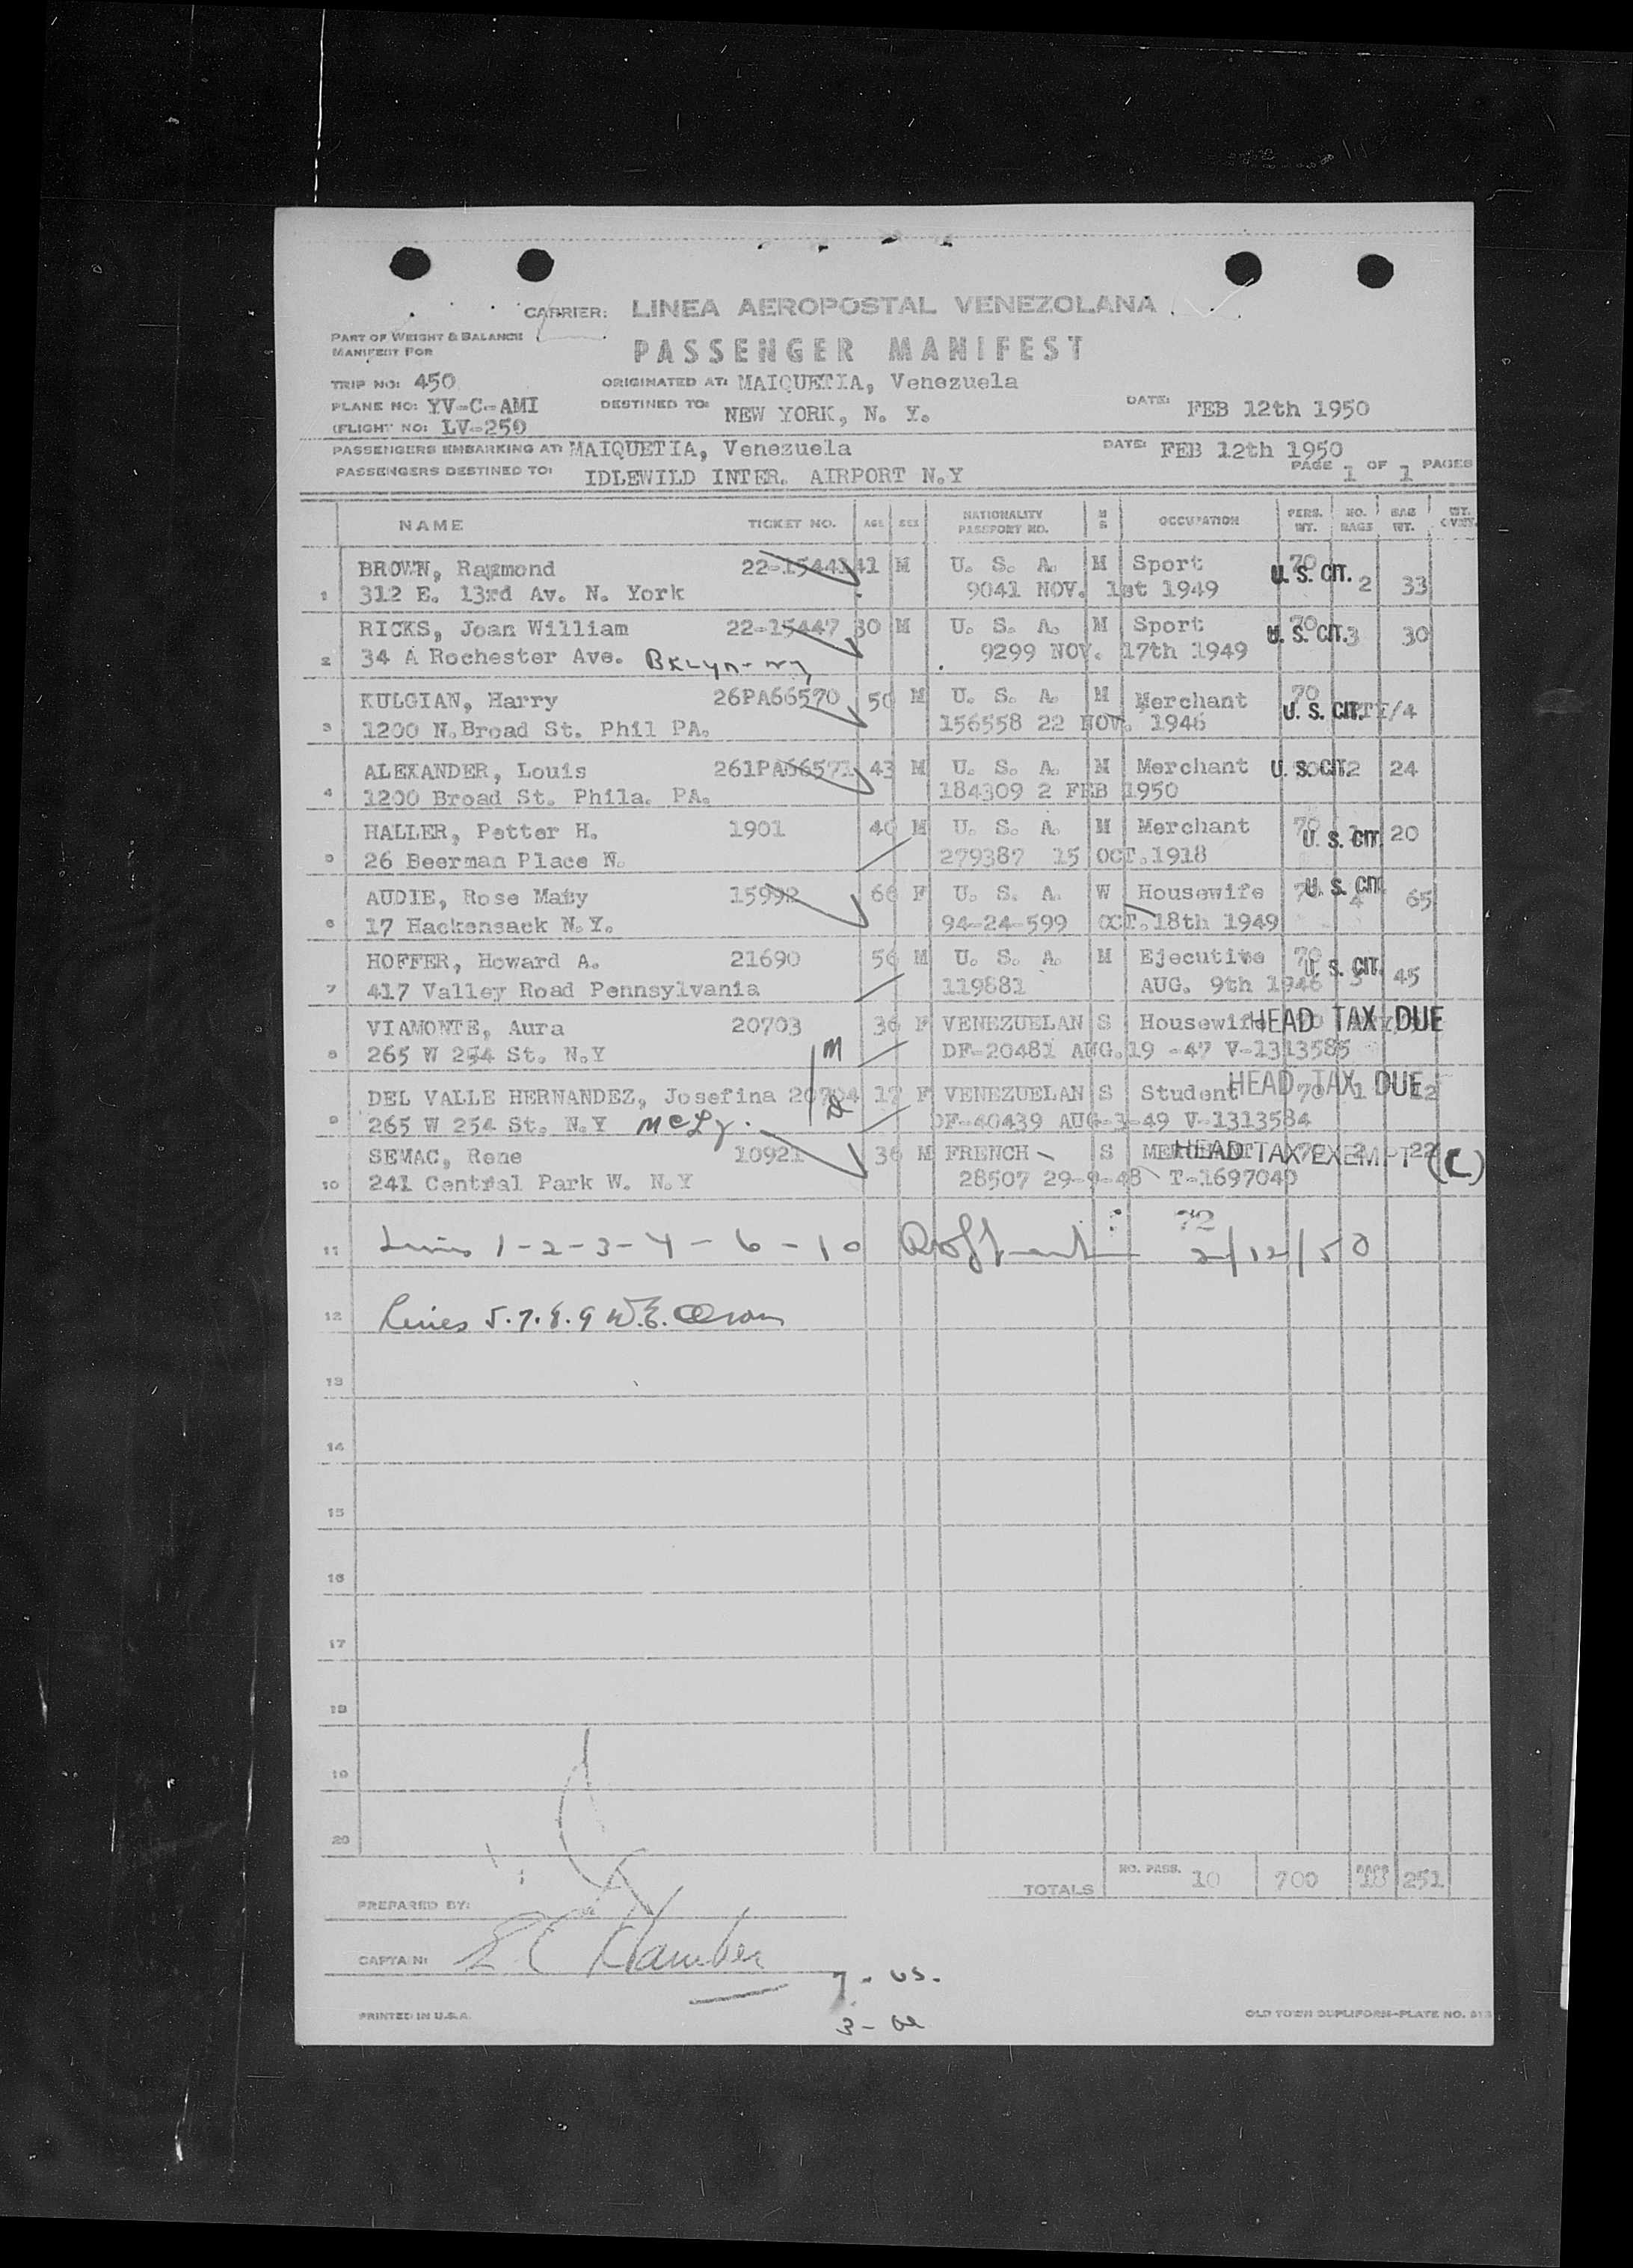 CARRIER: LINEA AEROPOSTAL VENEZOLANA
PART OF WEIGHT & BALANCE
MANIFEST FOR
PASSENGER MANIFEST
TRIP NO: 450 ORIGINATED AT: MAIQUETIA, Venezuela
PLANE NO: YV-C-AMI DESTINED TO: NEW YORK, N. Y. DATE: FEB 12th 1950
(FLIGHT NO: LV-250
PASSENGERS EMBARKING AT: MAIQUETIA, Venezuela DATE: FEB 12th 1950
PASSENGERS DESTINED TO: IDLEWILD INTER. AIRPORT N.Y PAGE 1 OF 1 PAGES
NAME TICKET NO. AGE SEX NATIONALITY PASSPORT NO. M S OCCUPATION PERS. WT. NO. BAGS BAG WT. WT.
BROWN, Raymond 22-15441 41 M U. S. A. M Sport 70 U. S. CIT.
1 312 E. 13rd Av. N. York 9041 NOV. 1st 1949 2 33
RICKS, Joan William 22-15447 30 M U. S. A. M Sport 70 U. S. CIT. 3 30
2 34 A Rochester Ave. Bklyn-ny 9299 NOV. 17th 1949
KULGIAN, Harry 26PA66570 50 M U. S. A. M Merchant 70 U. S. CIT. /4
3 1200 N.Broad St. Phil PA. 156558 22 NOV. 1946
ALEXANDER, Louis 261PA66571 43 M U. S. A. M Merchant U. S. CIT. 2 24
4 1200 Broad St. Phila. PA. 184309 2 FEB 1950
HALLER, Petter H. 1901 40 M U. S. A. M Merchant 70 U. S. CIT. 20
5 26 Beerman Place N. 279387 15 OCT.1918
AUDIE, Rose Mary 15992 66 F U. S. A. W Housewife 70 U. S. CIT. 4 65
6 17 Hackensack N.Y. 94-24-599 OCT.18th 1949
HOFFER, Howard A. 21690 56 M U. S. A. M Ejecutive 70 U. S. CIT. 3 45
7 417 Valley Road Pennsylvania 119881 AUG. 9th 1946
VIAMONTE, Aura 20703 36 F VENEZUELAN S Housewife HEAD TAX DUE
8 265 W 254 St. N.Y M DF-20481 AUG.19 -47 V-1313585
DEL VALLE HERNANDEZ, Josefina 20704 17 F VENEZUELAN S Student HEAD TAX DUE 70 1 12
9 265 W 254 St. N.Y DF-40439 AUG-3-49 V-1313584
SEMAC, Rene 10921 36 M FRENCH S MERCHANT HEAD TAX EXEMPT 70 2 22 (C)
10 241 Central Park W. N.Y 28507 29-9-48 T-1697040
72
11 Lines 1-2-3-4-6-10 2/12/50
12 Lines 5.7.8.9 W.E.
13
14
15
16
17
18
19
20
TOTALS NO. PASS. 10 700 BAGS 18 251
PREPARED BY:
CAPTAIN:
7 - US.
3 -
PRINTED IN U.S.A. OLD TOWN DUPLIFORM-PLATE NO.